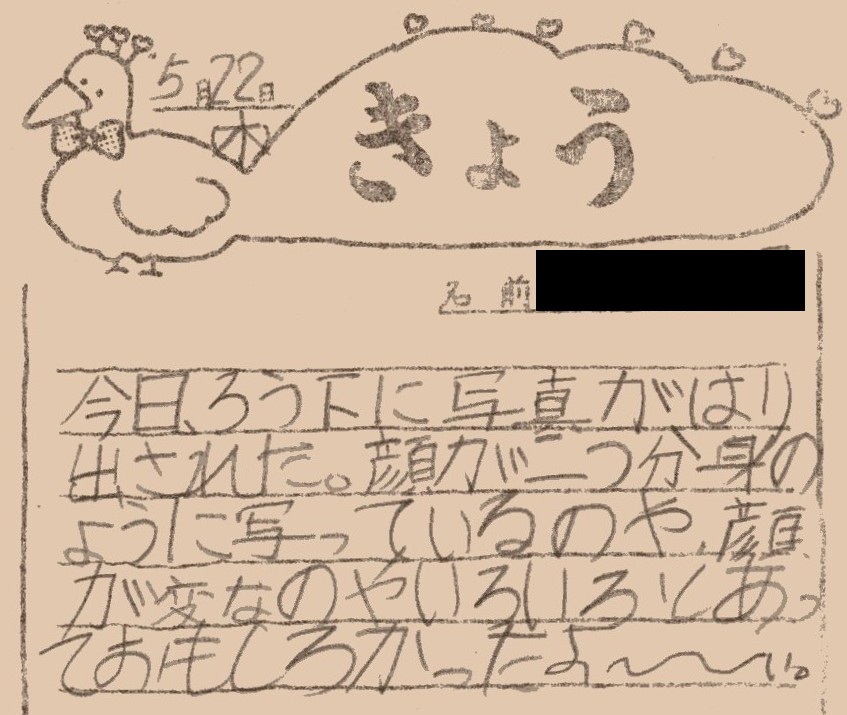 5月22日
木
きょう
名前
今日、ろう下に写真がはり
出された。顔が二つ分身の
ように写っているのや、顔
が変なのやいろいろとあっ
ておもしろかったよ〜〜〜い。